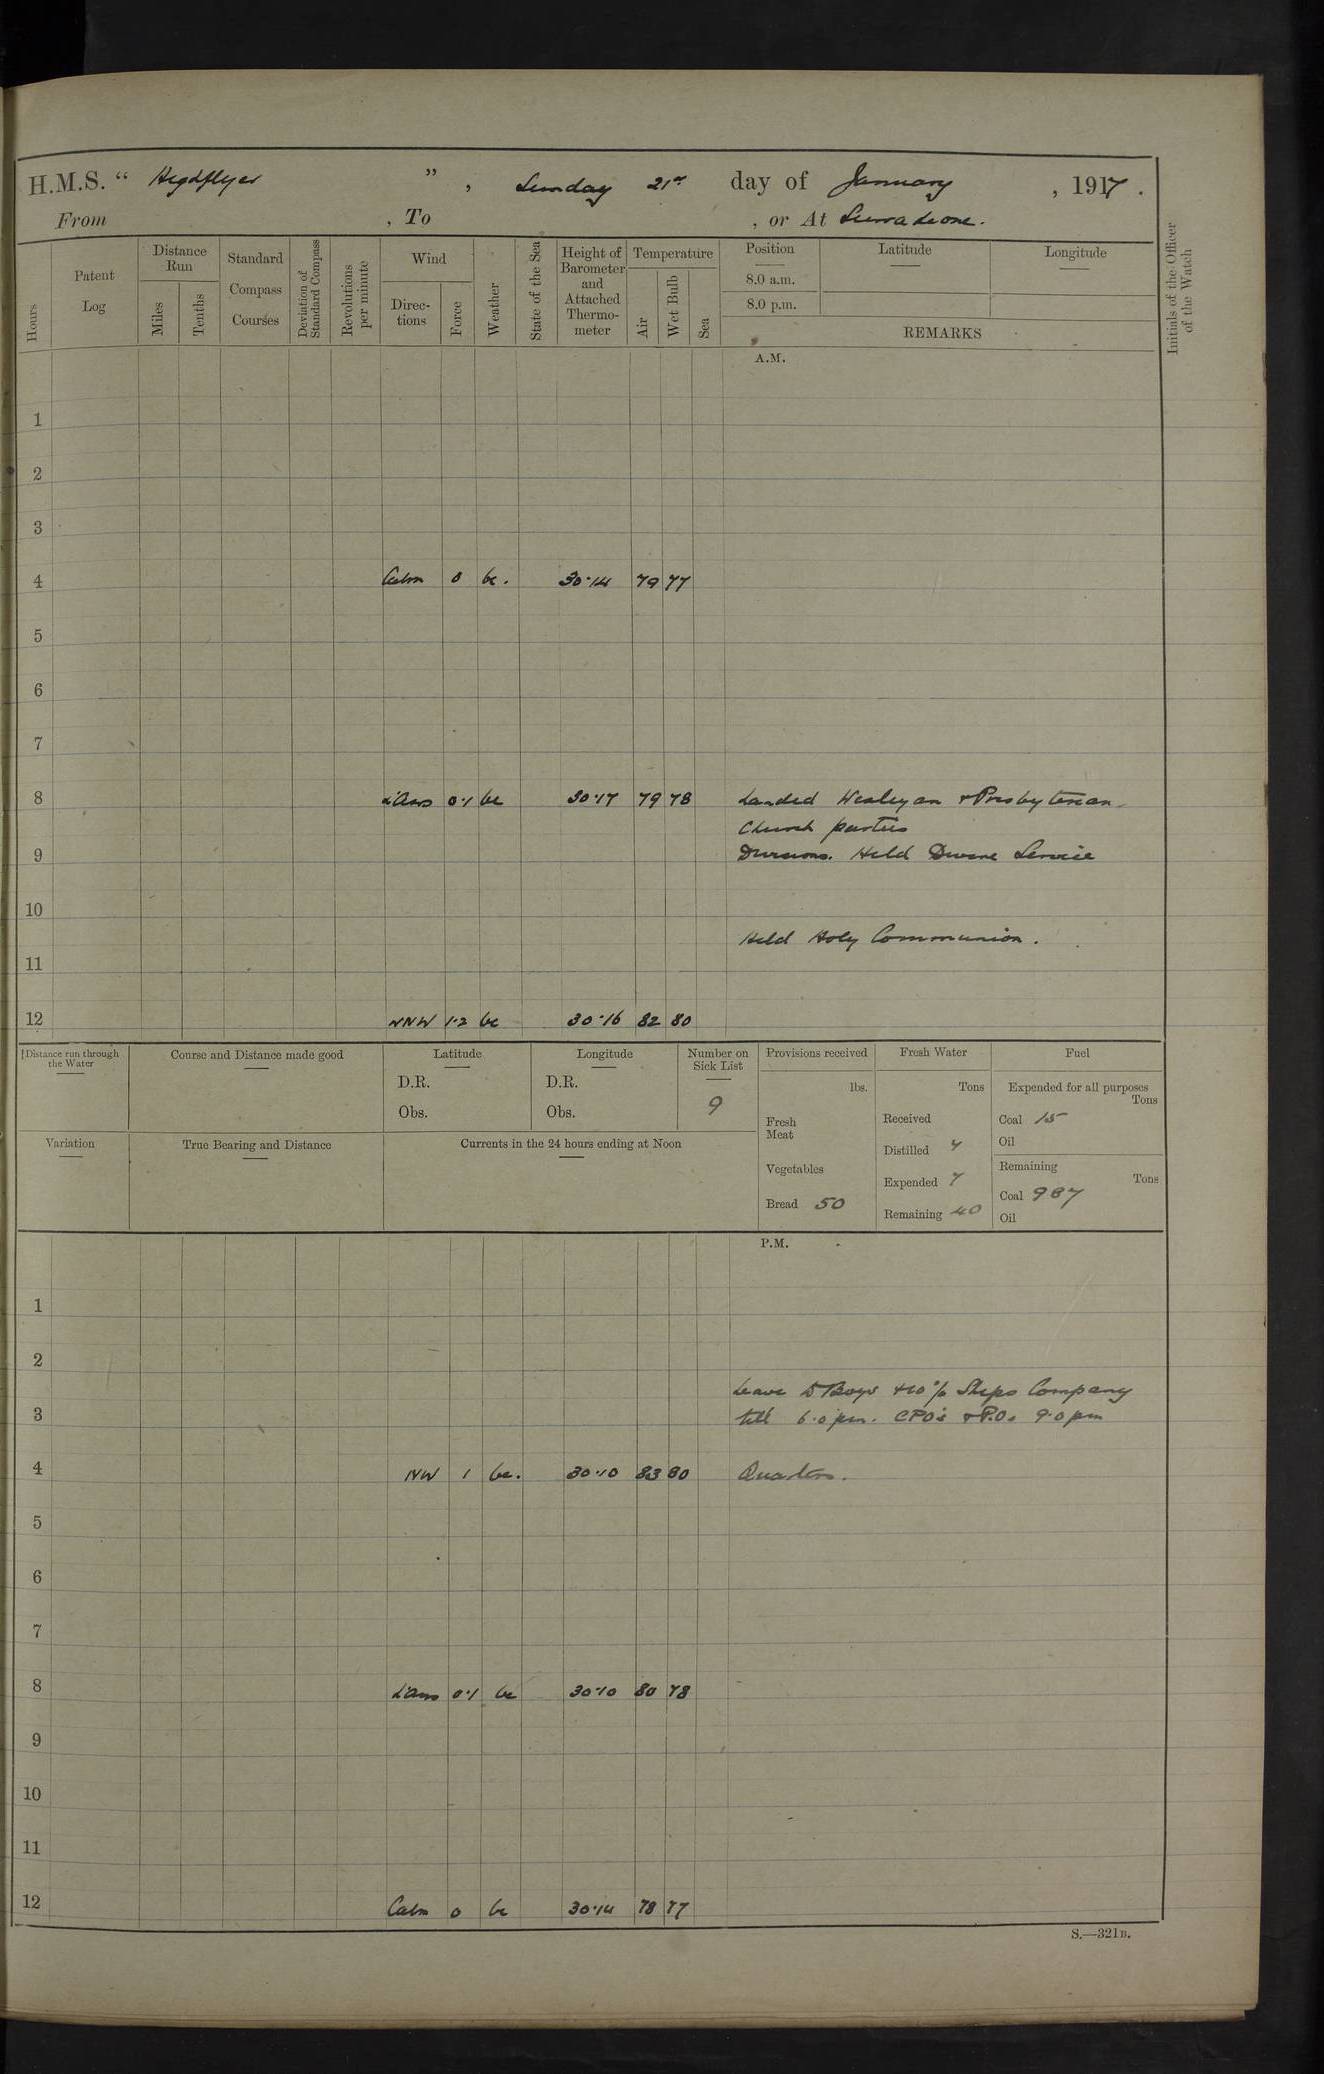 H.M.S. “ Highflyer ” , Sunday 21st day of January , 1917 .
From , To , or At Sierra Leone.
Hours
Patent Log
Distance Run
Miles
Tenths
Standard Compass Courses
Deviation of Standard Compass
Revolutions per minute
Wind
Direc-tions
Force
Weather
State of the Sea
Height of Barometer and Attached Thermo-meter
Temperature
Air
Wet Bulb
Sea
Position
Latitude
Longitude
8.0 a.m.
8.0 p.m.
REMARKS
Initials of the Officer of the Watch
A.M.
1
2
3
4 Calm 0 bc. 30·14 79 77
5
6
7
8 L'Airs 0·1 bc 30·17 79 78 Landed Wesleyan + Presbyterian
Church parties
9 Divisions. Held Divine Service
10
Held Holy Communion.
11
12 NNW 1·2 bc 30·16 82 80
Distance run through the Water
Course and Distance made good
Latitude
D.R.
Obs.
Longitude
D.R.
Obs.
Number on Sick List
9
Provisions received
lbs.
Fresh Meat
Vegetables
Bread 50
Fresh Water
Tons
Received
Distilled 7
Expended 7
Remaining 40
Fuel
Expended for all purposes
Tons
Coal 15
Oil
Remaining
Tons
Coal 987
Oil
Variation
True Bearing and Distance
Currents in the 24 hours ending at Noon
P.M.
1
2
Leave to Boys + 10% Ships Company
3 till 6.0 pm. CPO's + P.Os 9.0 pm
4 NW 1 bc. 30·10 83 80 Quarters.
5
6
7
8 L'Airs 0·1 bc 30·10 80 78
9
10
11
12 Calm 0 bc 30·14 78 77
S.—321B.